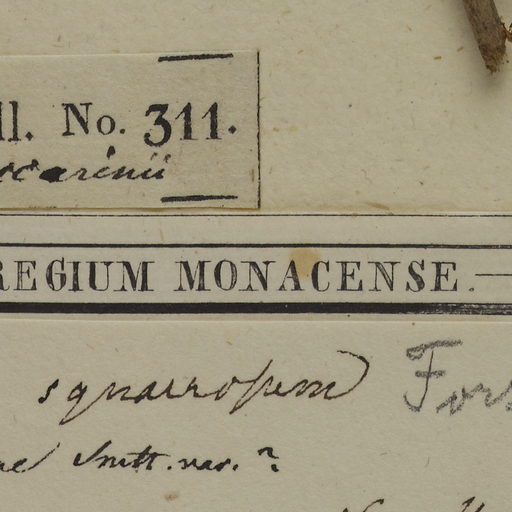 ll. No. 311.
ocarinii
REGIUM MONACENSE.
squarrosum Fors
Smith. var. ?